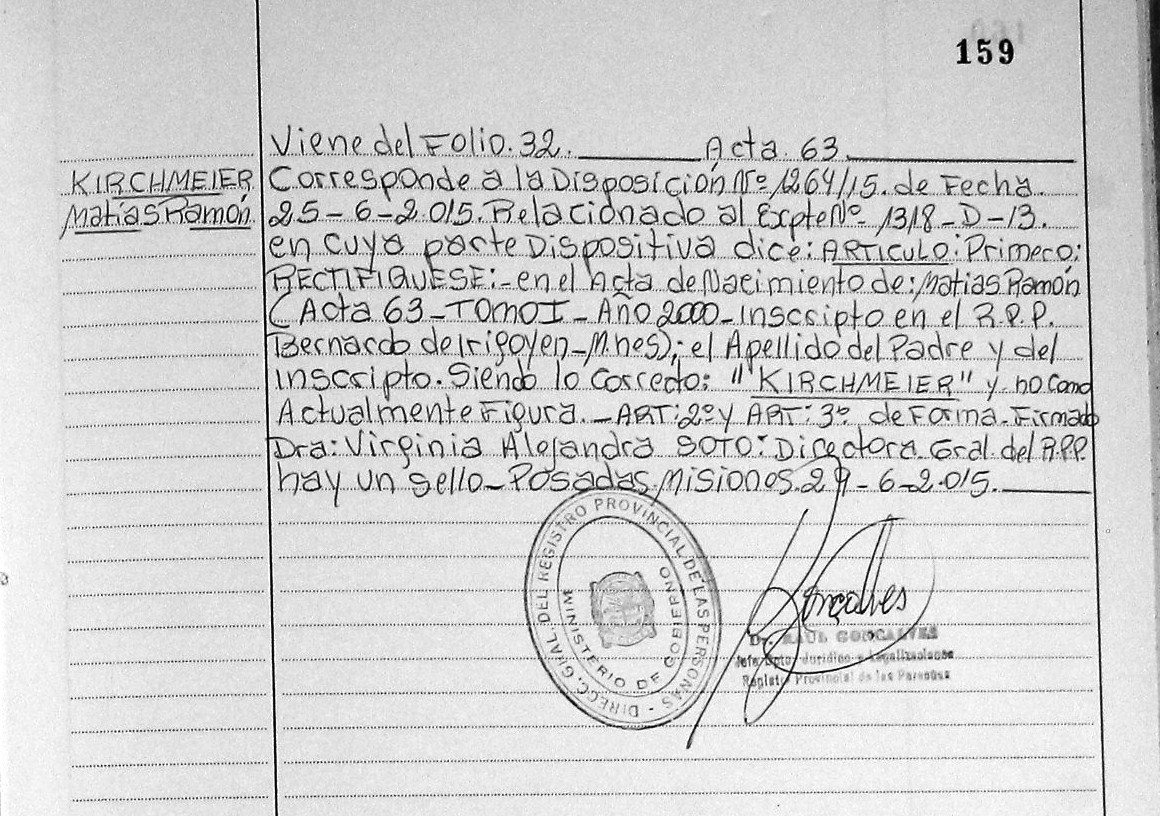 159
Viene del Folio. 32. Acta. 63.
KIRCHMEIER
Matias Ramón
Corresponde a la Disposición Nº 1264/15. de Fecha
25-6-2.015. Relacionado al Expte Nº 1318-D-13.
en cuya parte Dispositiva dice: ARTICULO: Primero:
RECTIFIQUESE:- en el Acta de Nacimiento de: Matias Ramón
(Acta 63-TOMO I-Año 2000-Inscripto en el R.P.P.
Bernardo de Irigoyen-M.nes); el Apellido del Padre y del
inscripto. Siendo lo Correcto: "KIRCHMEIER" y no Como
Actualmente Figura.-ART: 2º y ART: 3º de Forma-Firmado
Dra: Virginia Alejandra SOTO: Directora Gral del R.P.P.
hay un sello-Posadas, Misiones, 29-6-2.015.
DIRECC. GRAL. DEL REGISTRO PROVINCIAL DE LAS PERSONAS -
MINISTERIO DE GOBIERNO
Gonçalves
Dr. RAUL GONCALVES
Jefe Dpto. Jurídico y Legalizaciones
Registro Provincial de las Personas